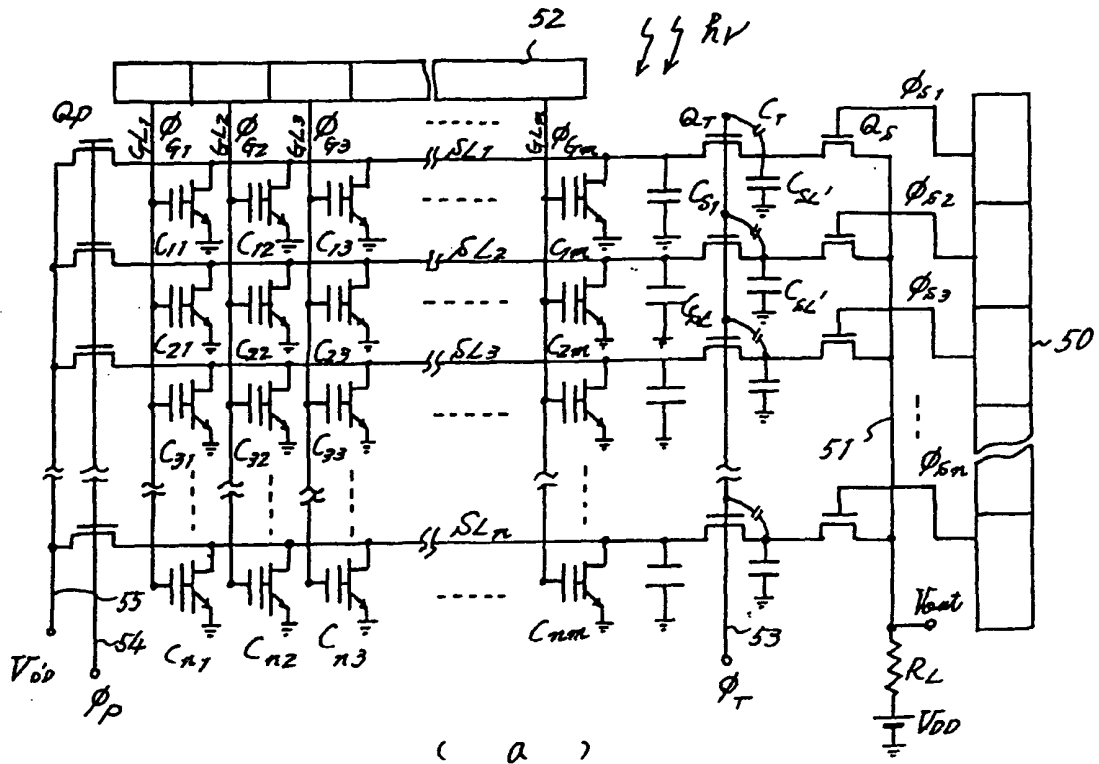 52
hν
Qp
GL1
φG1
GL2
φG2
GL3
φG3
GLm
φGm
QT
CT
QS
φS1
SL1
C11
C12
C13
C1m
CS1
CSL'
φS2
SL2
C21
C22
C23
C2m
CSL
CSL'
φS3
SL3
50
C31
C32
C33
51
φSn
SLn
55
54
Cn1
Cn2
Cn3
Cnm
53
Vout
VD'D
φp
φT
RL
VDD
( a )